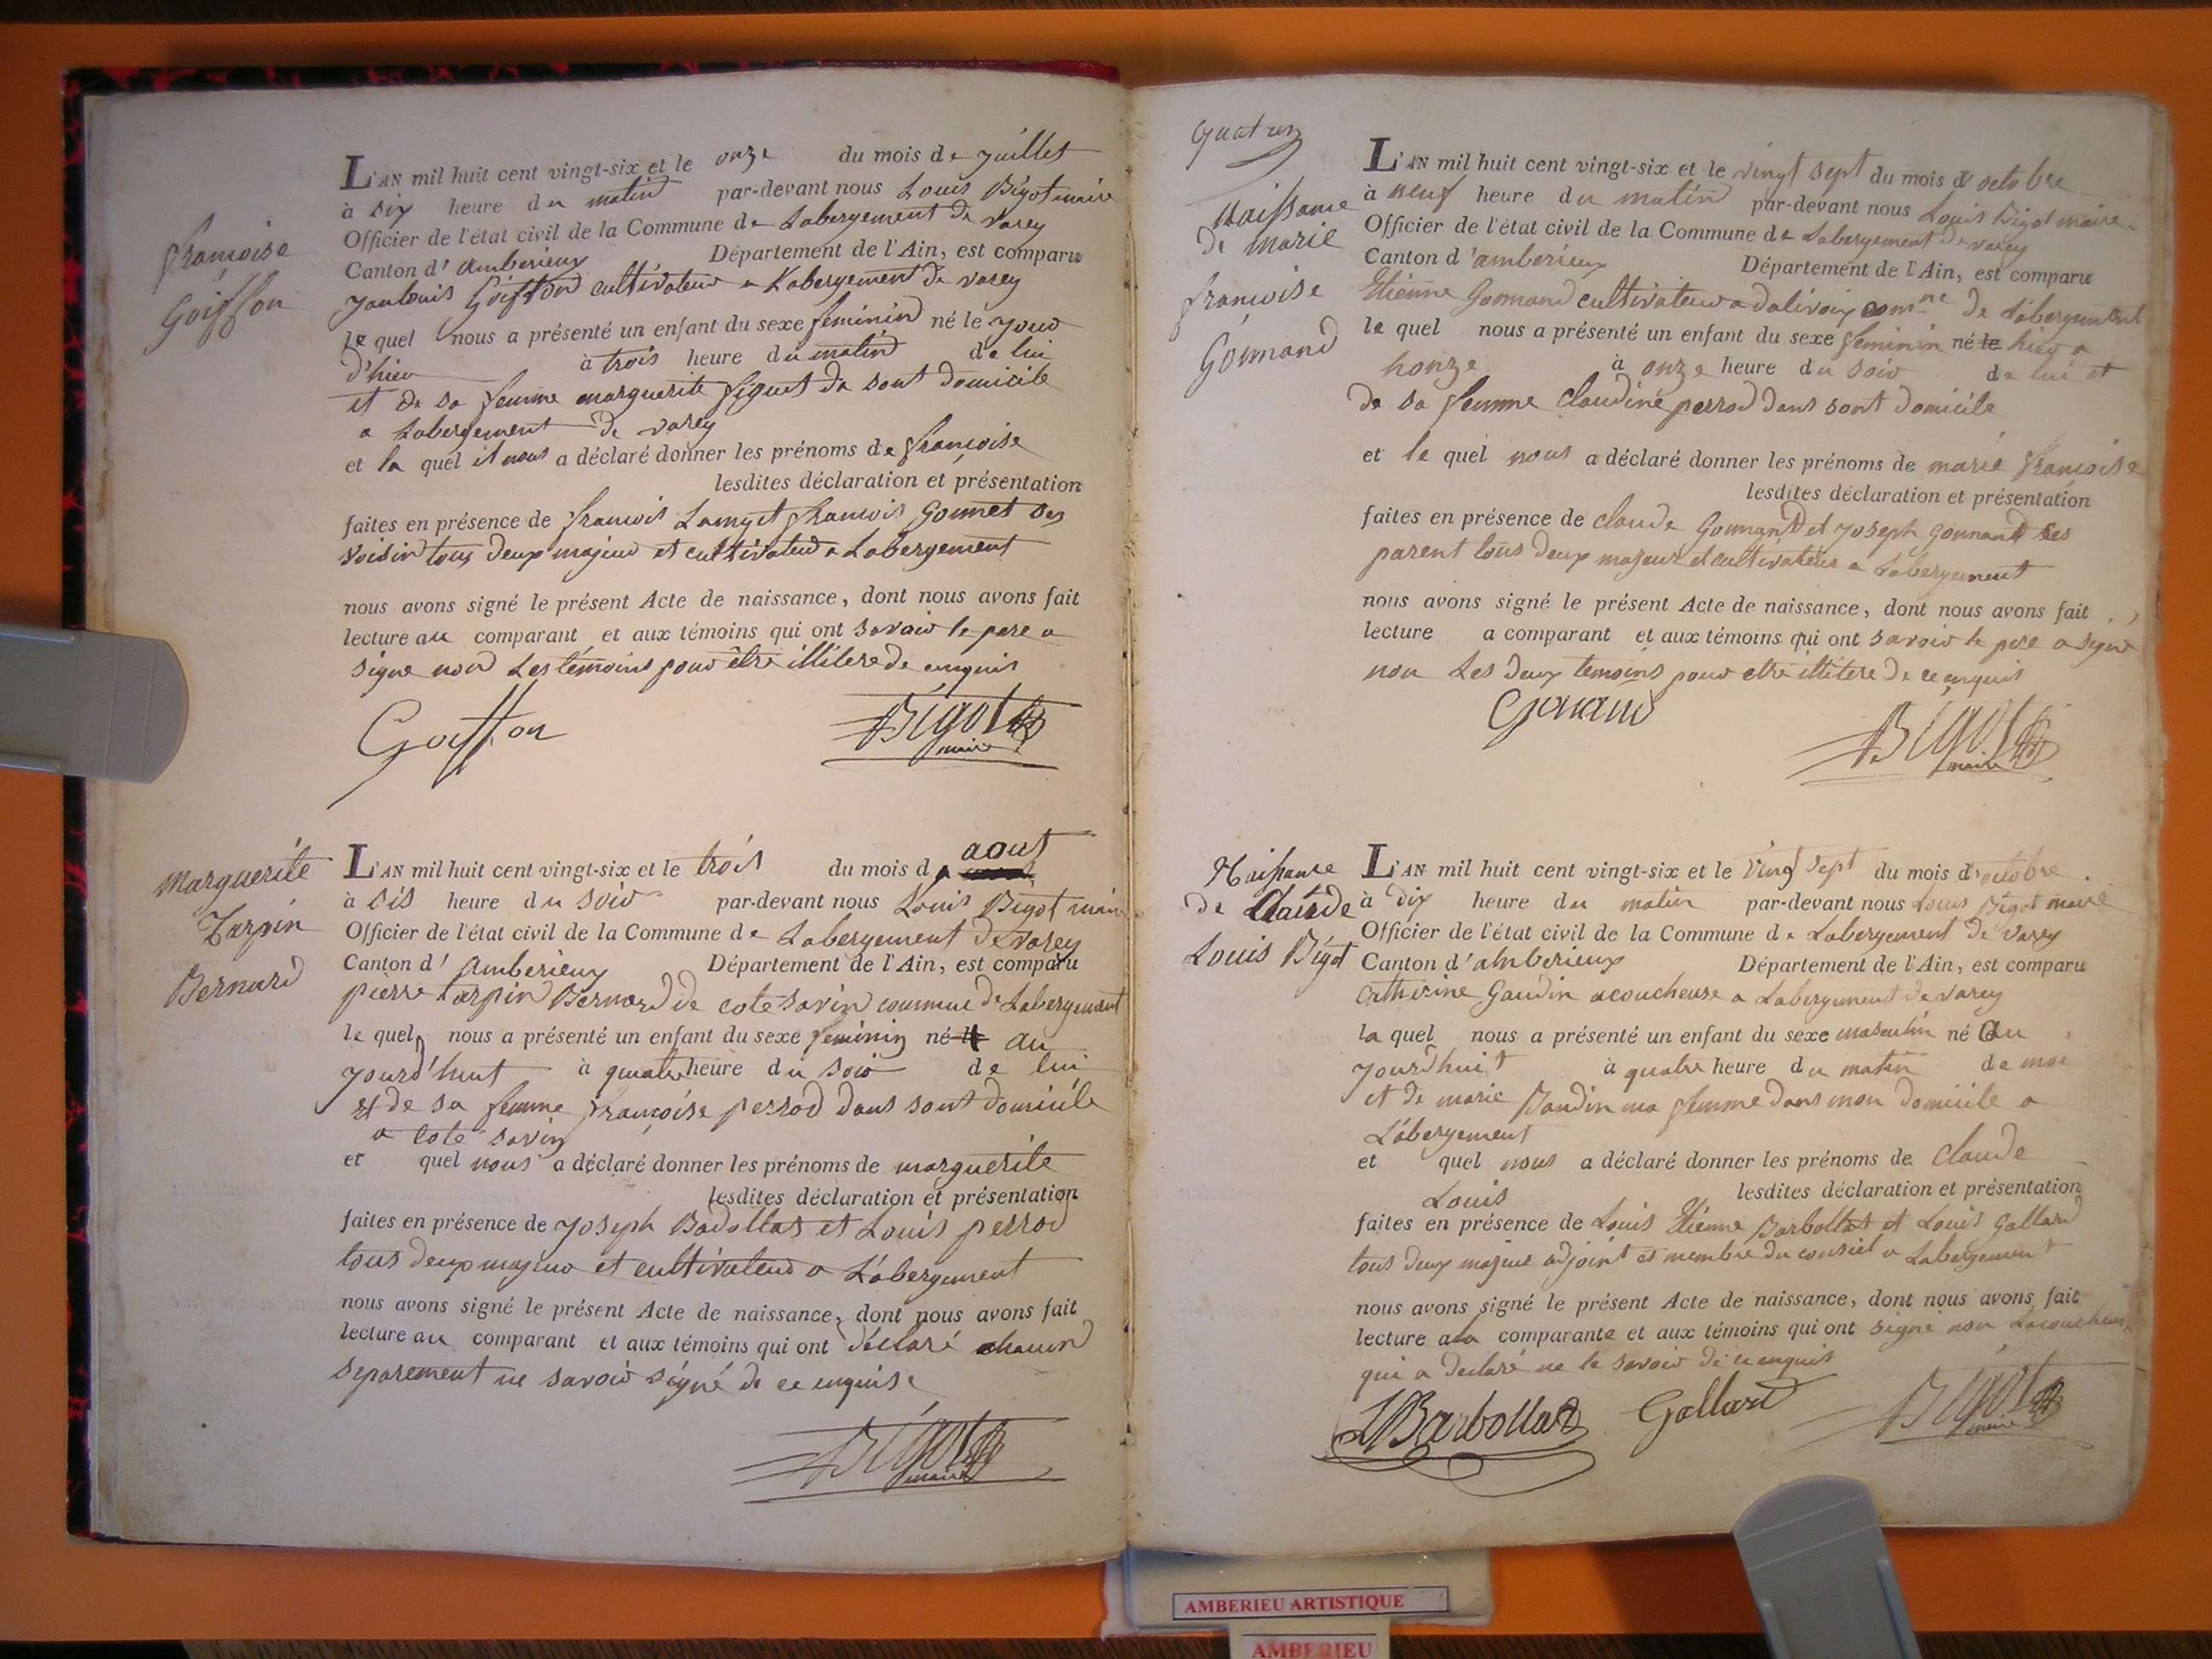 françoise
Goiffon
L'AN mil huit cent vingt-six et le onze du mois de juillet
à six heure du matin par-devant nous Louis Bigot maire
Officier de l'état civil de la Commune de Labergement de varey
Canton d'amberieux Département de l'Ain, est comparu
Goiffond cultivateur a Labergement de varey
lequel nous a présenté un enfant du sexe feminind né le jour
d'hier à trois heure du matind de lui
et de sa femme marguerite figuet da sont domicile
a Labergement de varey
et la quel il nous a déclaré donner les prénoms de françoise
lesdites déclaration et présentation
faites en présence de francois Lamy et francois Gonnet
voisin tous deux majeur et cultivateur a Labergement
nous avons signé le présent Acte de naissance, dont nous avons fait
lecture au comparant et aux témoins qui ont savoir le pere a
signe non Les témoins pour être illitere de enquis
Goiffon
Bigot
maire
marguerite
Tarpin
Bernard
L'AN mil huit cent vingt-six et le trois du mois d aout
à sis heure du soir par-devant nous Louis Bigot maire
Officier de l'état civil de la Commune de Labergement de varey
Canton d'amberieux Département de l'Ain, est comparu
pierre tarpin Bernard de cote savin commune de Labergement
le quel nous a présenté un enfant du sexe feminin né le au
jourd'huit à quatre heure du soir de lui
et de sa femme françoise perrod dans sont domicile
a cote savin
et quel nous a déclaré donner les prénoms de marguerite
lesdites déclaration et présentation
faites en présence de joseph Badollas et Louis perrod
tous deux majeur et cultivateur a Labergement
nous avons signé le présent Acte de naissance, dont nous avons fait
lecture au comparant et aux témoins qui ont déclaré chacun
separement ne savoir signé de ce enquis
Bigot
maire
quatre
Naissance
de marie
françoise
Gonnand
L'AN mil huit cent vingt-six et le vingt sept du mois d octobre
à neuf heure du matin par-devant nous Louis Bigot maire
Officier de l'état civil de la Commune de Labergement de varey
Canton d'amberieux Département de l'Ain, est comparu
Etienne Gonnand cultivateur a dalivoix comne de Labergement
le quel nous a présenté un enfant du sexe feminin né le hier a
honze à onze heure du soir de lui et
de sa femme Claudine perrod dans sont domicile
et le quel nous a déclaré donner les prénoms de marie françoise
lesdites déclaration et présentation
faites en présence de claude Gonnand et joseph Gonnand ses
parent tous deux majeur et cultivateur a Labergement
nous avons signé le présent Acte de naissance, dont nous avons fait
lecture a comparant et aux témoins qui ont savoir le pere a signé
non Les deux temoins pour etre illitere de ce enquis
Gonand
Bigot
maire
Naissance
de Claude
Louis Bigot
L'AN mil huit cent vingt-six et le vingt sept du mois d'octobre
à dix heure du matin par-devant nous Louis Bigot maire
Officier de l'état civil de la Commune de Labergement de varey
Canton d'amberieux Département de l'Ain, est comparu
Catherine Gaudin acoucheuse a Labergement de varey
la quel nous a présenté un enfant du sexe masculin né au
jourdhuit à quatre heure du matin de moi
et de marie Baudin ma femme dans mon domicile a
Labergement
et quel nous a déclaré donner les prénoms de claude
Louis lesdites déclaration et présentation
faites en présence de Louis Etienne Barbollat et Louis Gallard
tous deux majeur adjoint et membre du consiel a Labergement
nous avons signé le présent Acte de naissance, dont nous avons fait
lecture a la comparante et aux témoins qui ont signé non
qui a declaré ne le savoir de ce enquis
LBarbollat Gallard Bigot
maire
AMBERIEU ARTISTIQUE
AMBERIEU